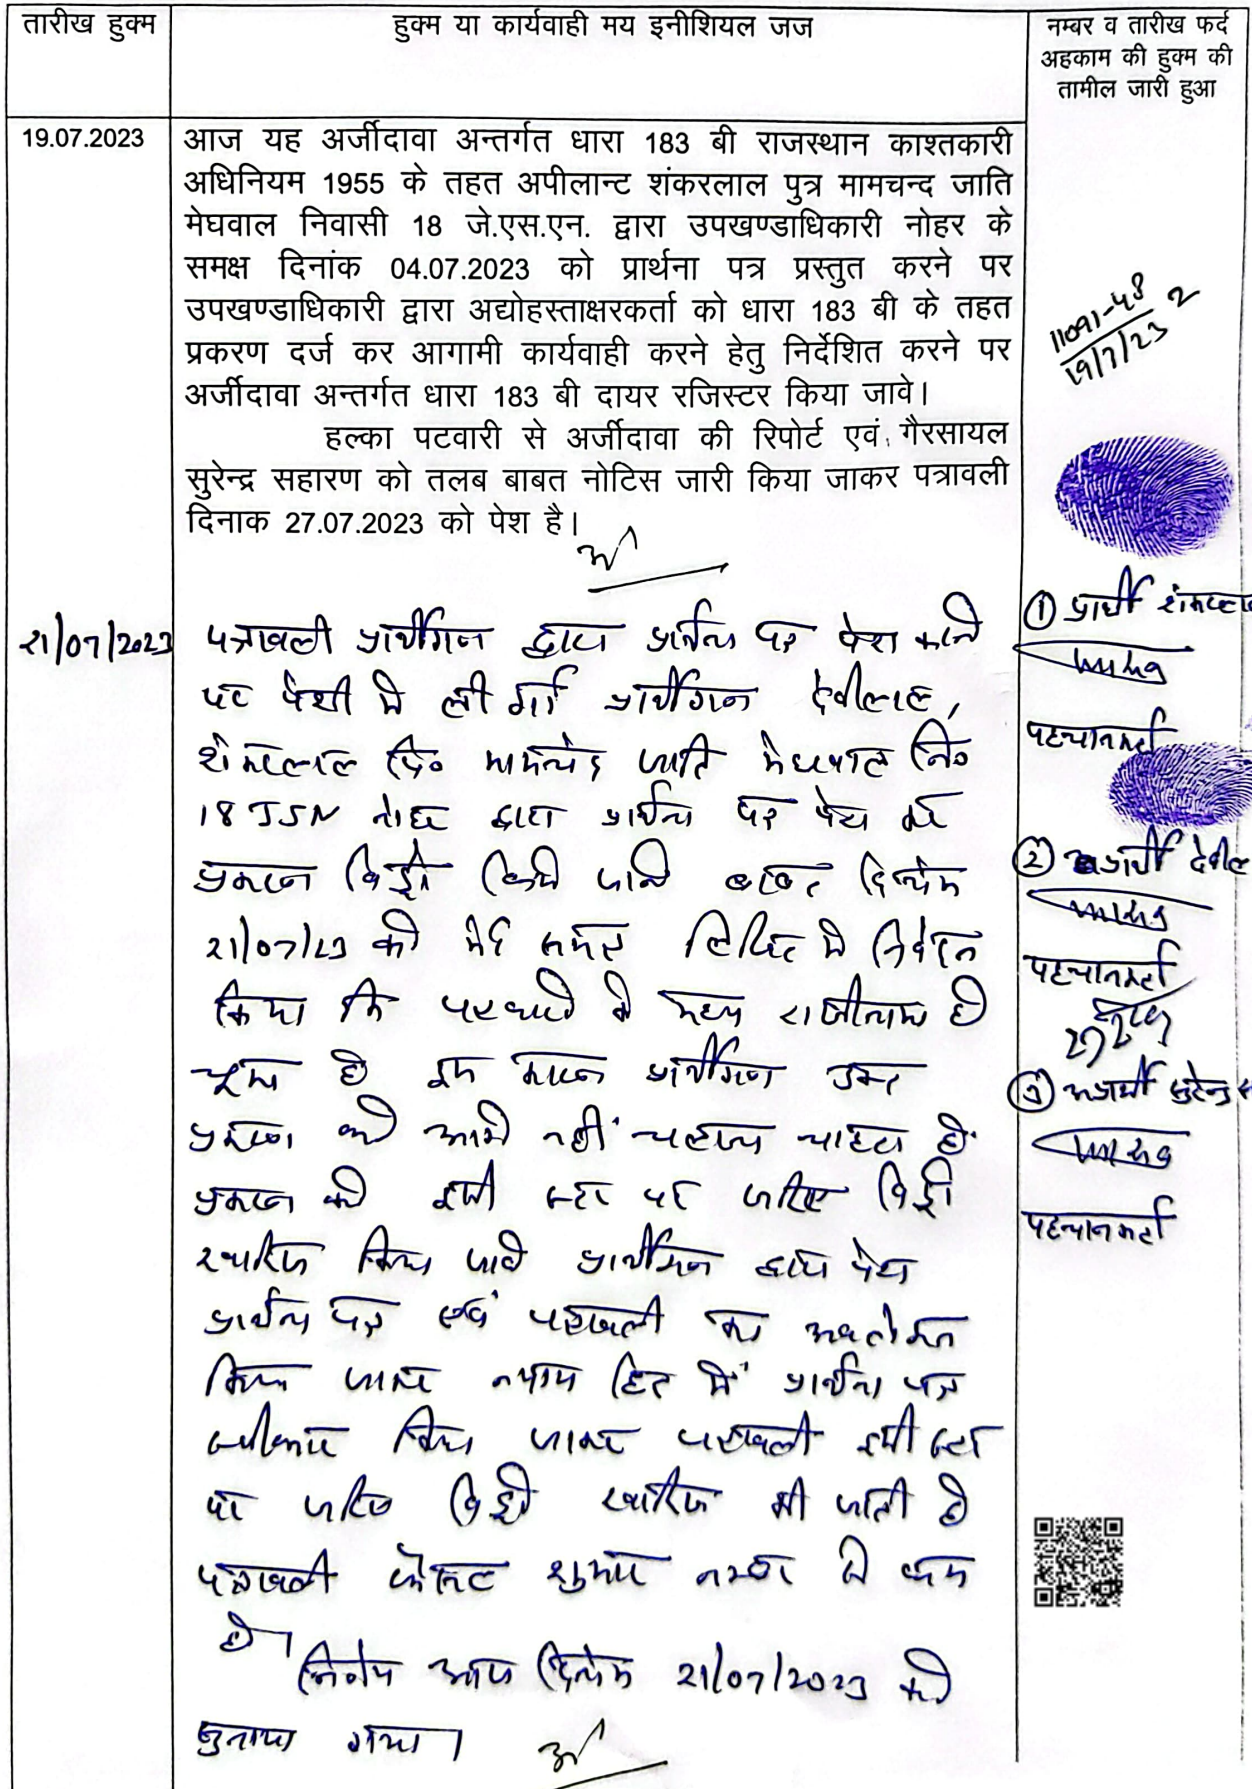 तारीख हुक्म
हुक्म या कार्यवाही मय इनीशियल जज
नम्बर व तारीख फर्द
अहकाम की हुक्म की
तामील जारी हुआ
19.07.2023
आज यह अर्जीदावा अन्तर्गत धारा 183 बी राजस्थान काश्तकारी
अधिनियम 1955 के तहत अपीलान्ट शंकरलाल पुत्र मामचन्द जाति
मेघवाल निवासी 18 जे.एस.एन. द्वारा उपखण्डाधिकारी नोहर के
समक्ष दिनांक 04.07.2023 को प्रार्थना पत्र प्रस्तुत करने पर
उपखण्डाधिकारी द्वारा अद्योहस्ताक्षरकर्ता को धारा 183 बी के तहत
प्रकरण दर्ज कर आगामी कार्यवाही करने हेतु निर्देशित करने पर
अर्जीदावा अन्तर्गत धारा 183 बी दायर रजिस्टर किया जावे।
हल्का पटवारी से अर्जीदावा की रिपोर्ट एवं गैरसायल
सुरेन्द्र सहारण को तलब बाबत नोटिस जारी किया जाकर पत्रावली
दिनाक 27.07.2023 को पेश है।
11091-48
19/7/23
21/07/2023
पत्रावली प्रार्थीगण द्वारा प्रार्थना पत्र पेश करने
पर पेशी मे ली गई प्रार्थीगण देवीलाल,
शंकरलाल पि० मामचंद जाति मेघवाल नि०
18 JSN नोहर द्वारा प्रार्थना पत्र पेश कर
प्रकरण विड्रो किये जाने बाबत दिनांक
21/07/23 को मेरे समक्ष लिखित मे निवेदन
किया कि पक्षकारो के मध्य राजीनामा हो
चूका है इस कारण प्रार्थीगण उक्त
प्रकरण को आगे नहीं चलाना चाहता है
प्रकरण को इसी स्तर पर जरिए विड्रो
खारिज किया जावे प्रार्थीगण द्वारा पेश
प्रार्थना पत्र एवं पत्रावली का अवलोकन
किया जाकर न्याय हित में प्रार्थना पत्र
स्वीकार किया जाकर पत्रावली इसी स्तर
पर जरिए विड्रो खारिज की जाती है
पत्रावली फैसल शुमार नम्बर से कम
हो।
निर्णय आज दिनांक 21/07/2023 को
सुनाया गया।
① प्रार्थी शंकरलाल
पहचानकर्ता
② प्रार्थी देवील
पहचानकर्ता
③ अप्रार्थी सुरेन्द्र
पहचानकर्ता